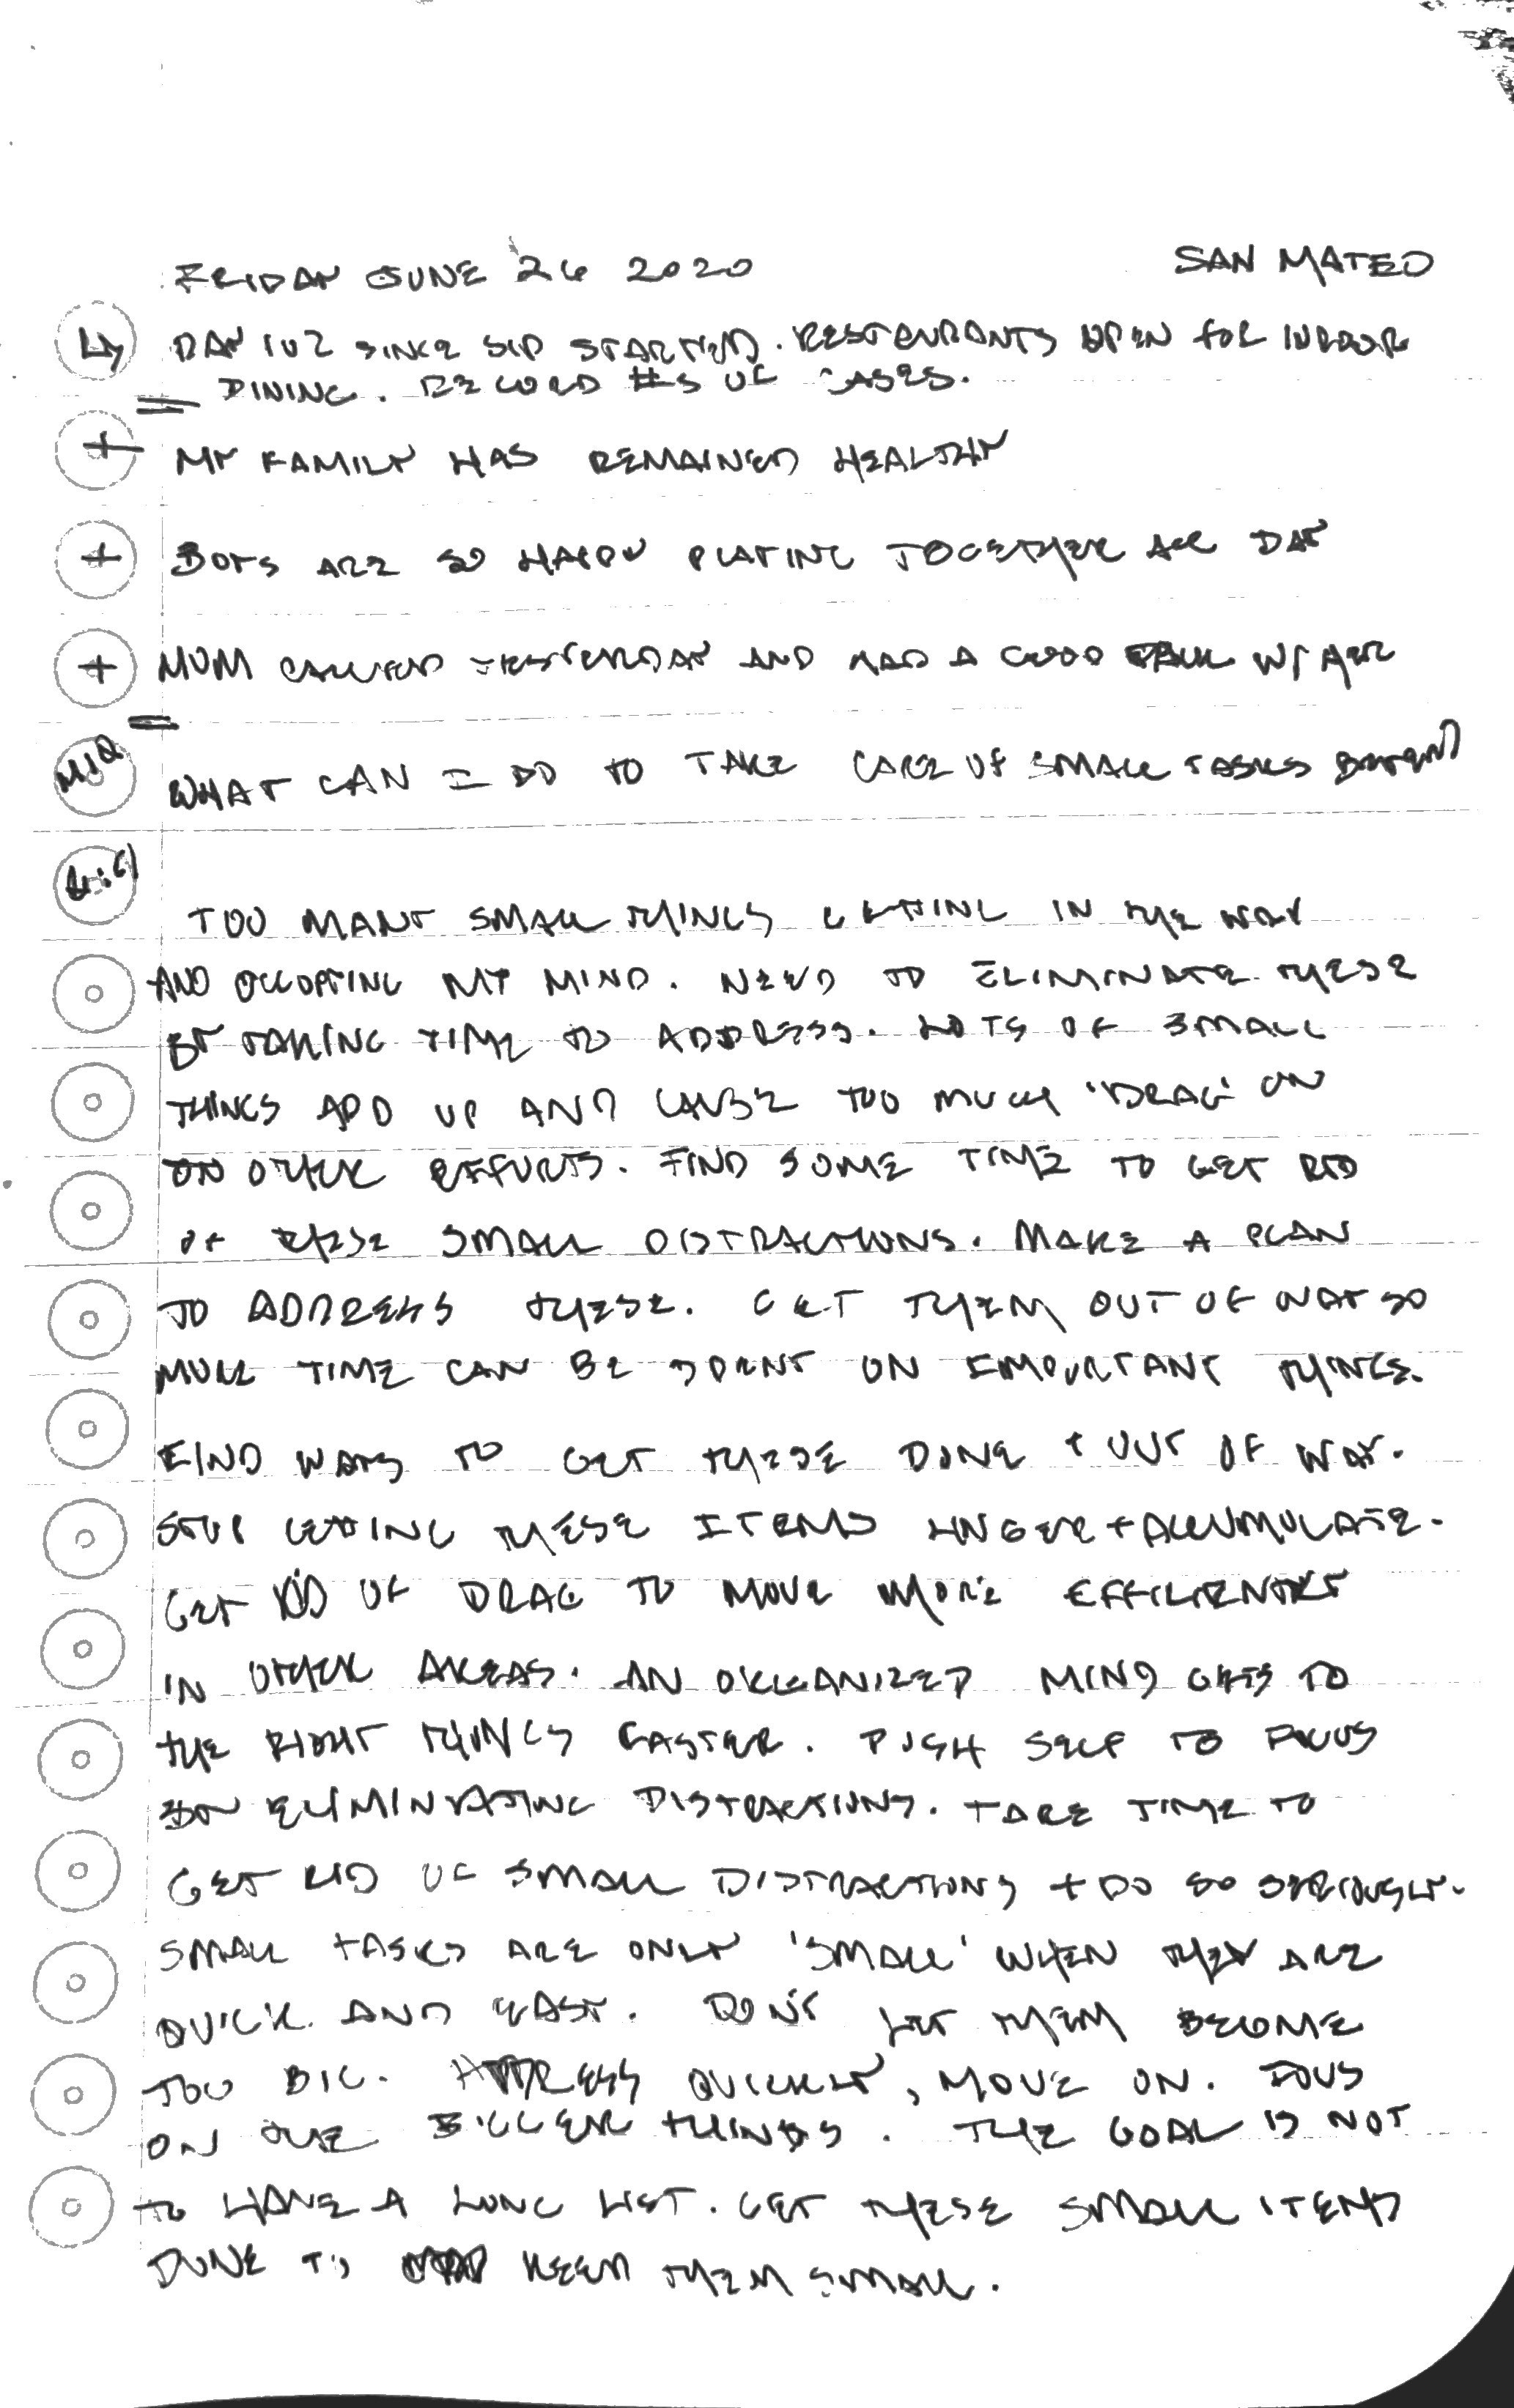 FRIDAY JUNE 26 2020 SAN MATEO
DAY 102 SINCE SIP STARTED. RESTAURANTS OPEN FOR INDOOR
DINING. RECORD #S OF CASES.
+ MY FAMILY HAS REMAINED HEALTHY
+ BOYS ARE SO HAPPY PLAYING TOGETHER ALL DAY
+ MOM CALLED YESTERDAY AND HAD A GOOD TALK W/ HER
MIQ WHAT CAN I DO TO TAKE CARE OF SMALL TASKS BETTER?
TOO MANY SMALL THINGS GETTING IN THE WAY
AND OCCUPYING MY MIND. NEED TO ELIMINATE THESE
BY TAKING TIME TO ADDRESS. LOTS OF SMALL
THINGS ADD UP AND CAUSE TOO MUCH 'DRAG' ON
ON OTHER EFFORTS. FIND SOME TIME TO GET RID
OF THESE SMALL DISTRACTIONS. MAKE A PLAN
TO ADDRESS THESE. GET THEM OUT OF WAY SO
MORE TIME CAN BE SPENT ON IMPORTANT THINGS.
FIND WAYS TO GET THESE DONE + OUT OF WAY.
STOP LETTING THESE ITEMS LINGER + ACCUMULATE.
GET RID OF DRAG TO MOVE MORE EFFICIENTLY
IN OTHER AREAS. AN ORGANIZED MIND GETS TO
THE RIGHT THINGS FASTER. PUSH SELF TO FOCUS
ON ELIMINATING DISTRACTIONS. TAKE TIME TO
GET RID OF SMALL DISTRACTIONS + DO SO SERIOUSLY.
SMALL TASKS ARE ONLY 'SMALL' WHEN THEY ARE
QUICK AND EASY. DON'T LET THEM BECOME
TOO BIG. ADDRESS QUICKLY, MOVE ON. FOCUS
ON THE BIGGER THINGS. THE GOAL IS NOT
TO HAVE A LONG LIST. GET THESE SMALL ITEMS
DONE TO KEEP THEM SMALL.